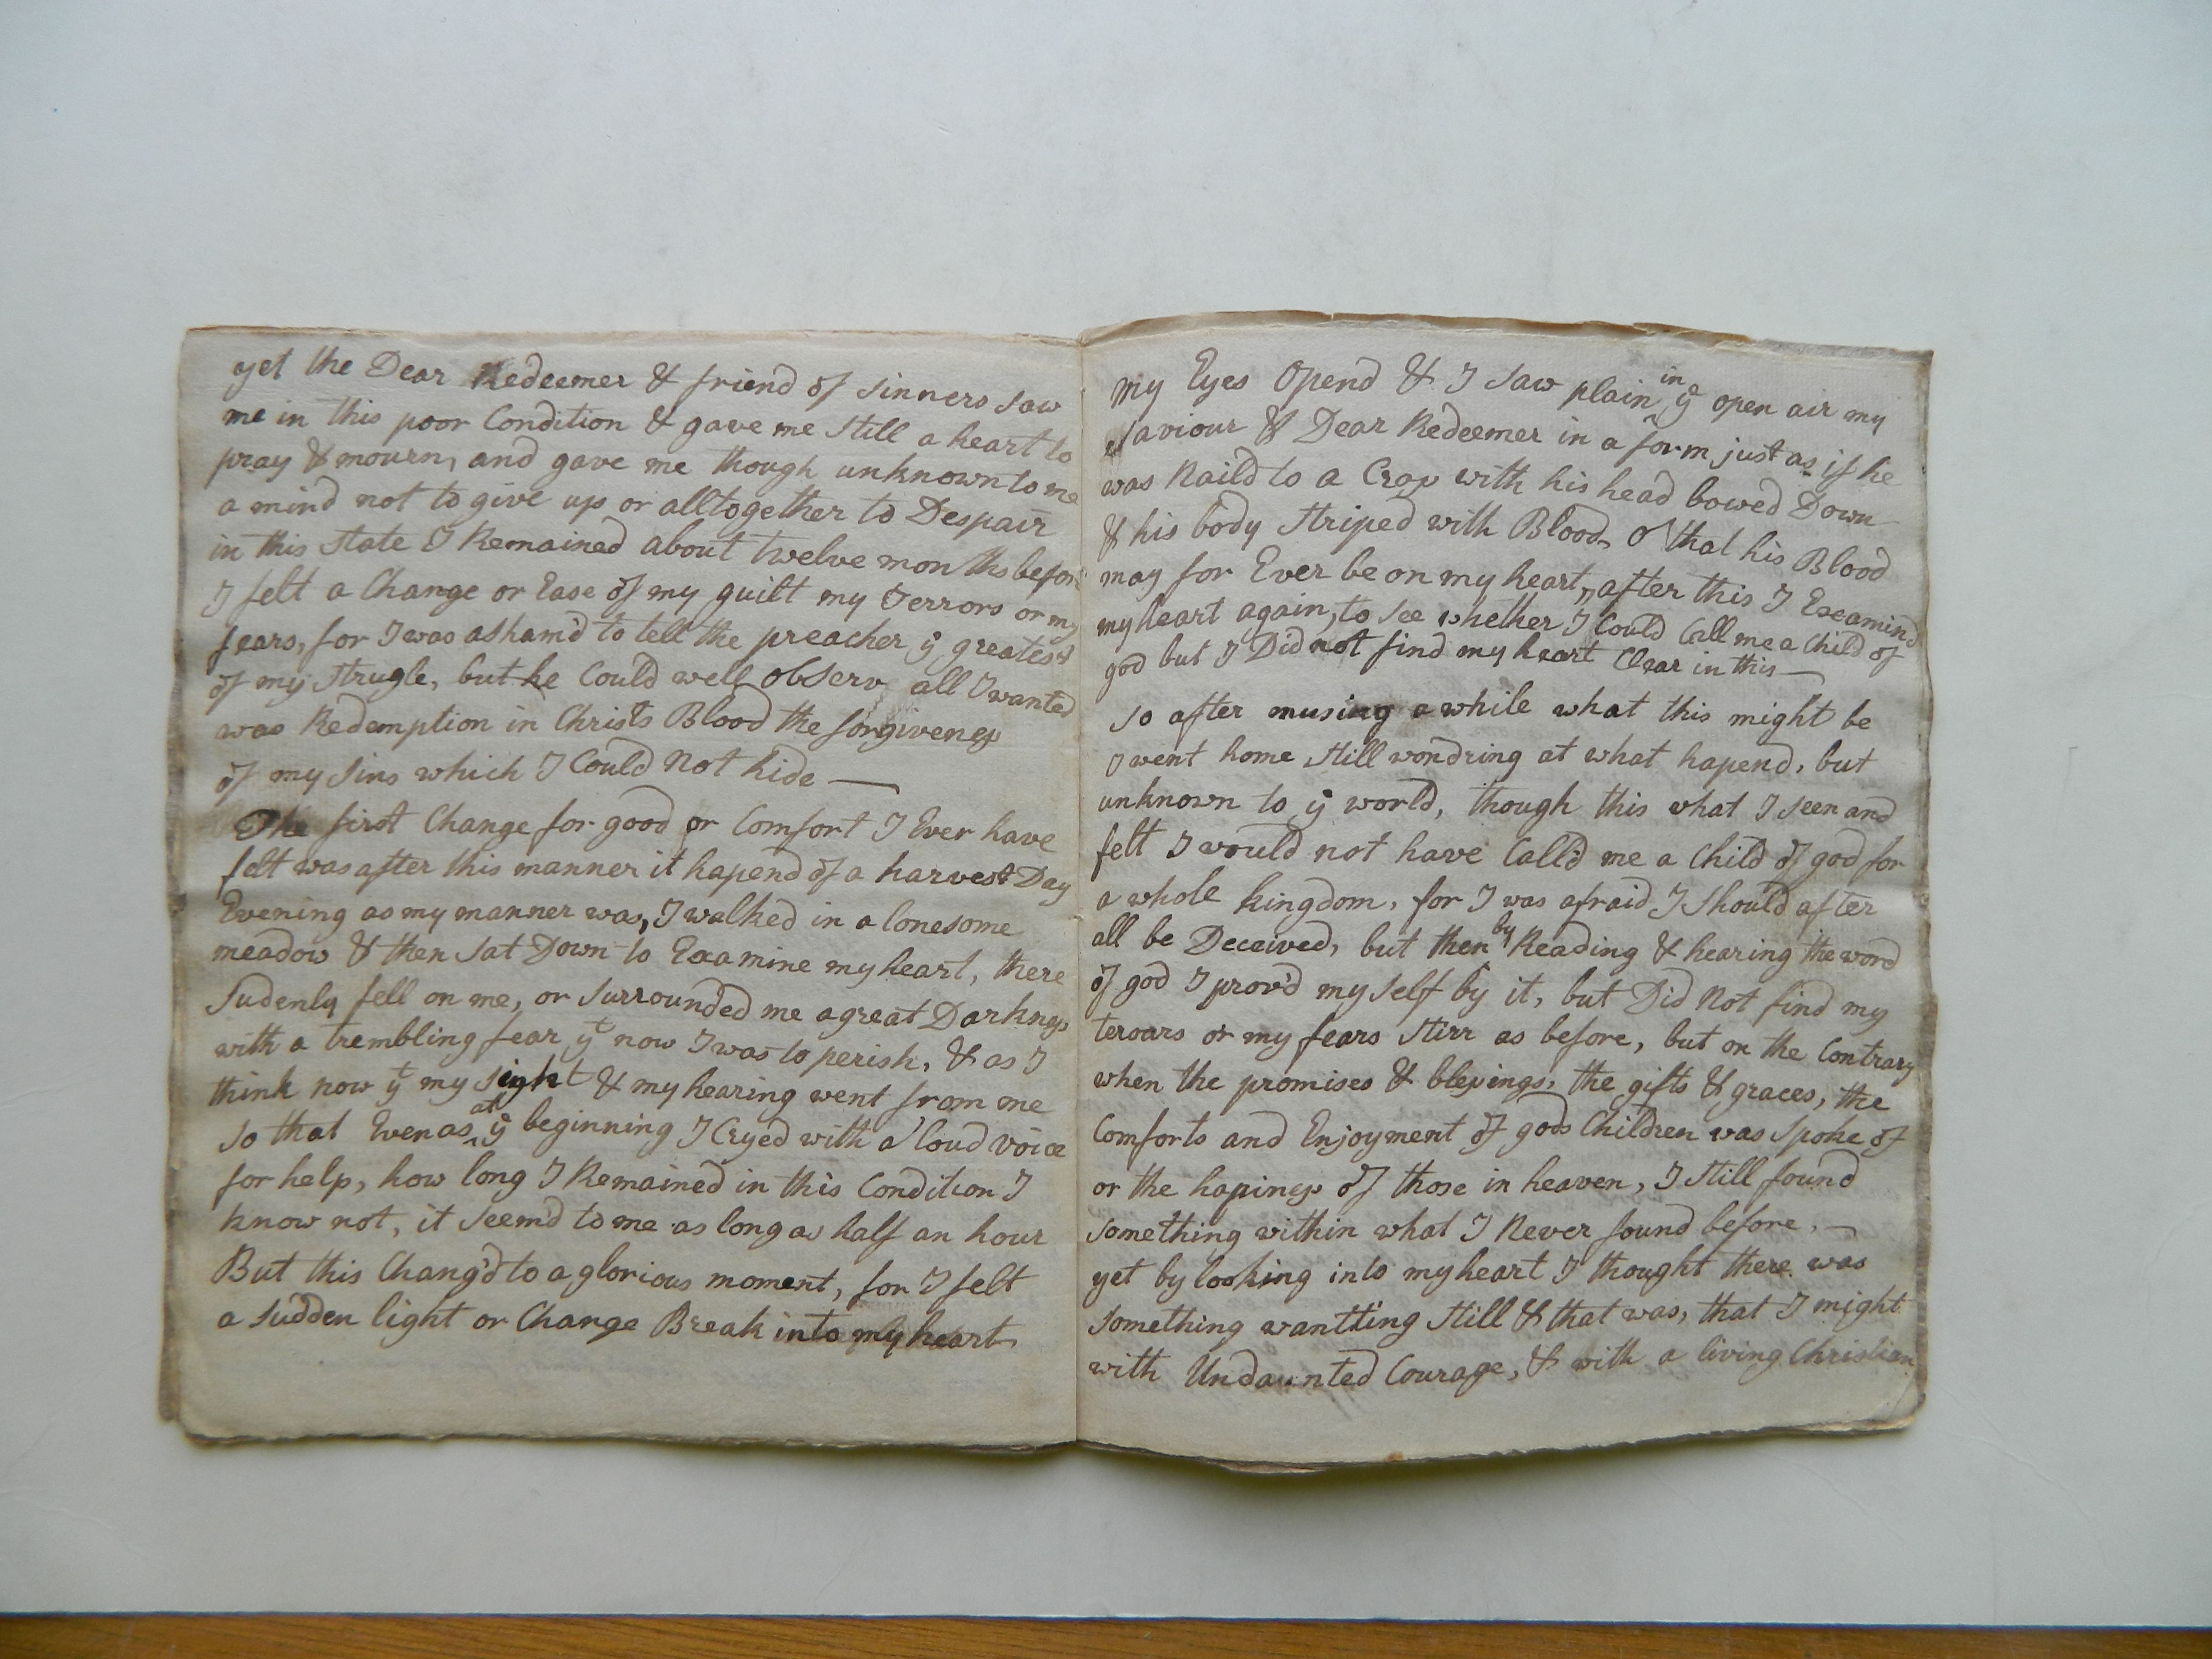 yet the Dear Redeemer & friend of sinners saw
me in this poor Condition & gave me still a heart to
pray & mourn, and gave me though unknown to me
a mind not to give up or alltogether to Despair
in this state I Remained about twelve months before
I felt a Change or Ease of my guilt my terrors or my
fears, for I was asham'd to tell the preacher ye greatest
of my strugle, but he Could well observ all I wanted
was Redemption in Christs Blood the forgiveness
of my sins which I Could not hide —
The first Change for good or Comfort I Ever have
felt was after this manner it hapend of a harvest Day
Evening as my manner was, I walked in a lonesome
meadow & then sat Down to Examine my heart, there
sudenly fell on me, or surrounded me a great Darkness
with a trembling fear yt now I was to perish, & as I
think now yt my sight & my hearing went from me
so that Even as at ye beginning I Cryed with a loud voice
for help, how long I Remained in this Condition I
know not, it seem'd to me as long as half an hour
But this Chang'd to a glorious moment, for I felt
a sudden light or Change Break into my heart
my Eyes Opend & I saw plain in ye open air my
saviour & Dear Redeemer in a form just as if he
was Naild to a Cross with his head bowed Down
& his body striped with Blood, o that his Blood
may for Ever be on my heart, after this I Examind
my heart again, to see whether I Could Call me a Child of
god but I Did not find my heart Clear in this —
so after musing a while what this might be
I went home still wondring at what hapend, but
unknown to ye world, though this what I seen and
felt I would not have Call'd me a Child of god for
a whole kingdom, for I was afraid I should after
all be Deceived, but then by Reading & hearing the word
of god I prov'd my self by it, but Did Not find my
teroars or my fears stirr as before, but on the Contrary
when the promises & blessings, the gifts & graces, the
Comforts and Enjoyment of gods Children was spoke of
or the hapiness of those in heaven, I still found
something within what I Never found before, —
yet by looking into my heart I thought there was
something wantting still & that was, that I might
with Undaunted Courage, & with a living Christian